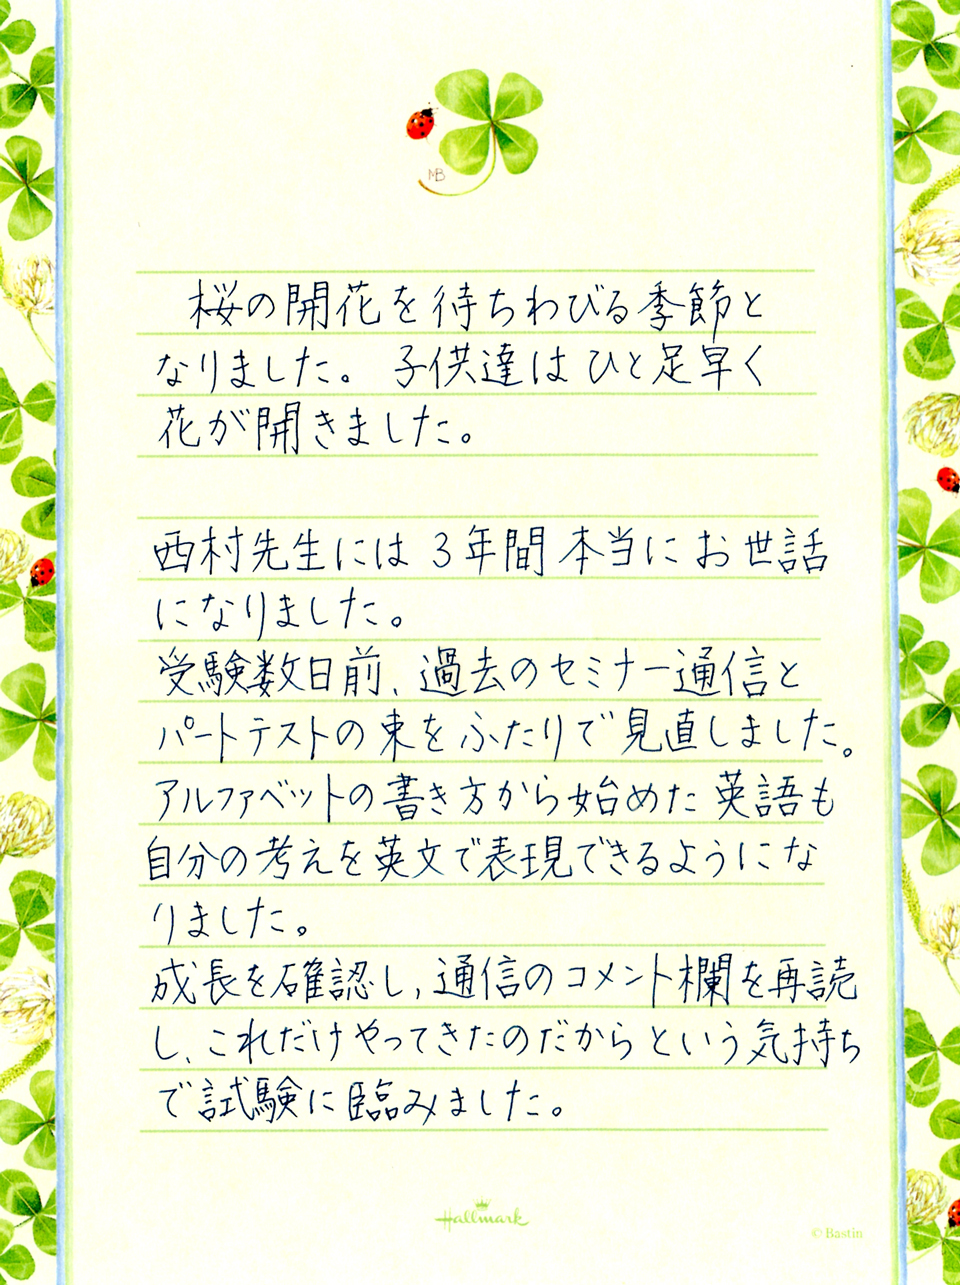 MB
桜の開花を待ちわびる季節と
なりました。子供達はひと足早く
花が開きました。
西村先生には3年間本当にお世話
になりました。
受験数日前、過去のセミナー通信と
パートテストの束をふたりで見直しました。
アルファベットの書き方から始めた英語も
自分の考えを英文で表現できるようにな
りました。
成長を確認し、通信のコメント欄を再読
し、これだけやってきたのだからという気持ち
で試験に臨みました。
Hallmark
© Bastin